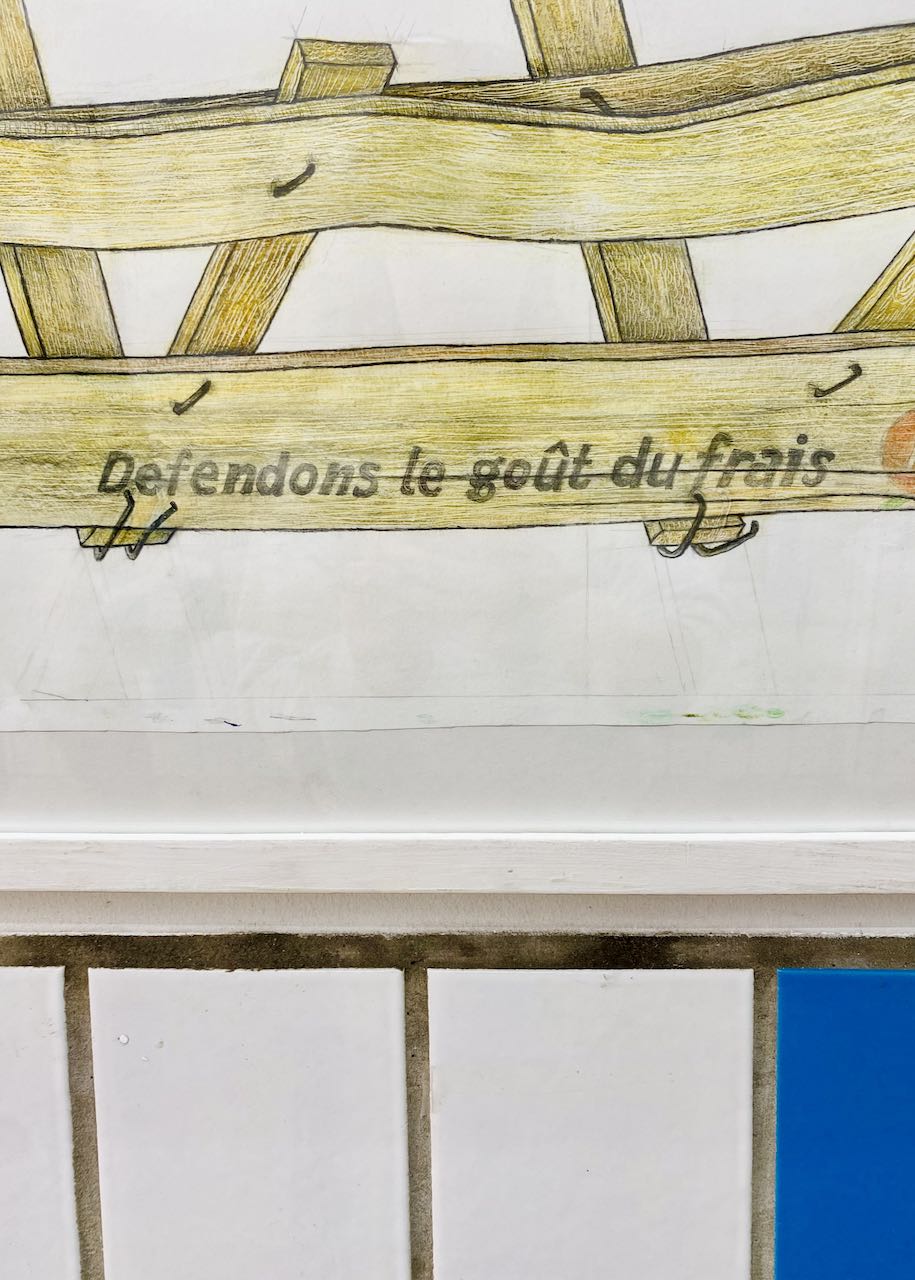 Defendons le goût du frais